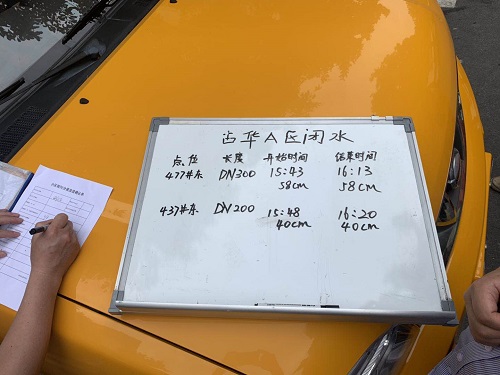 占华A区闭水
点位 长度 开始时间 结束时间
477#东 DN300 15:43 16:13
58cm 58cm
437#东 DN200 15:48 16:20
40cm 40cm